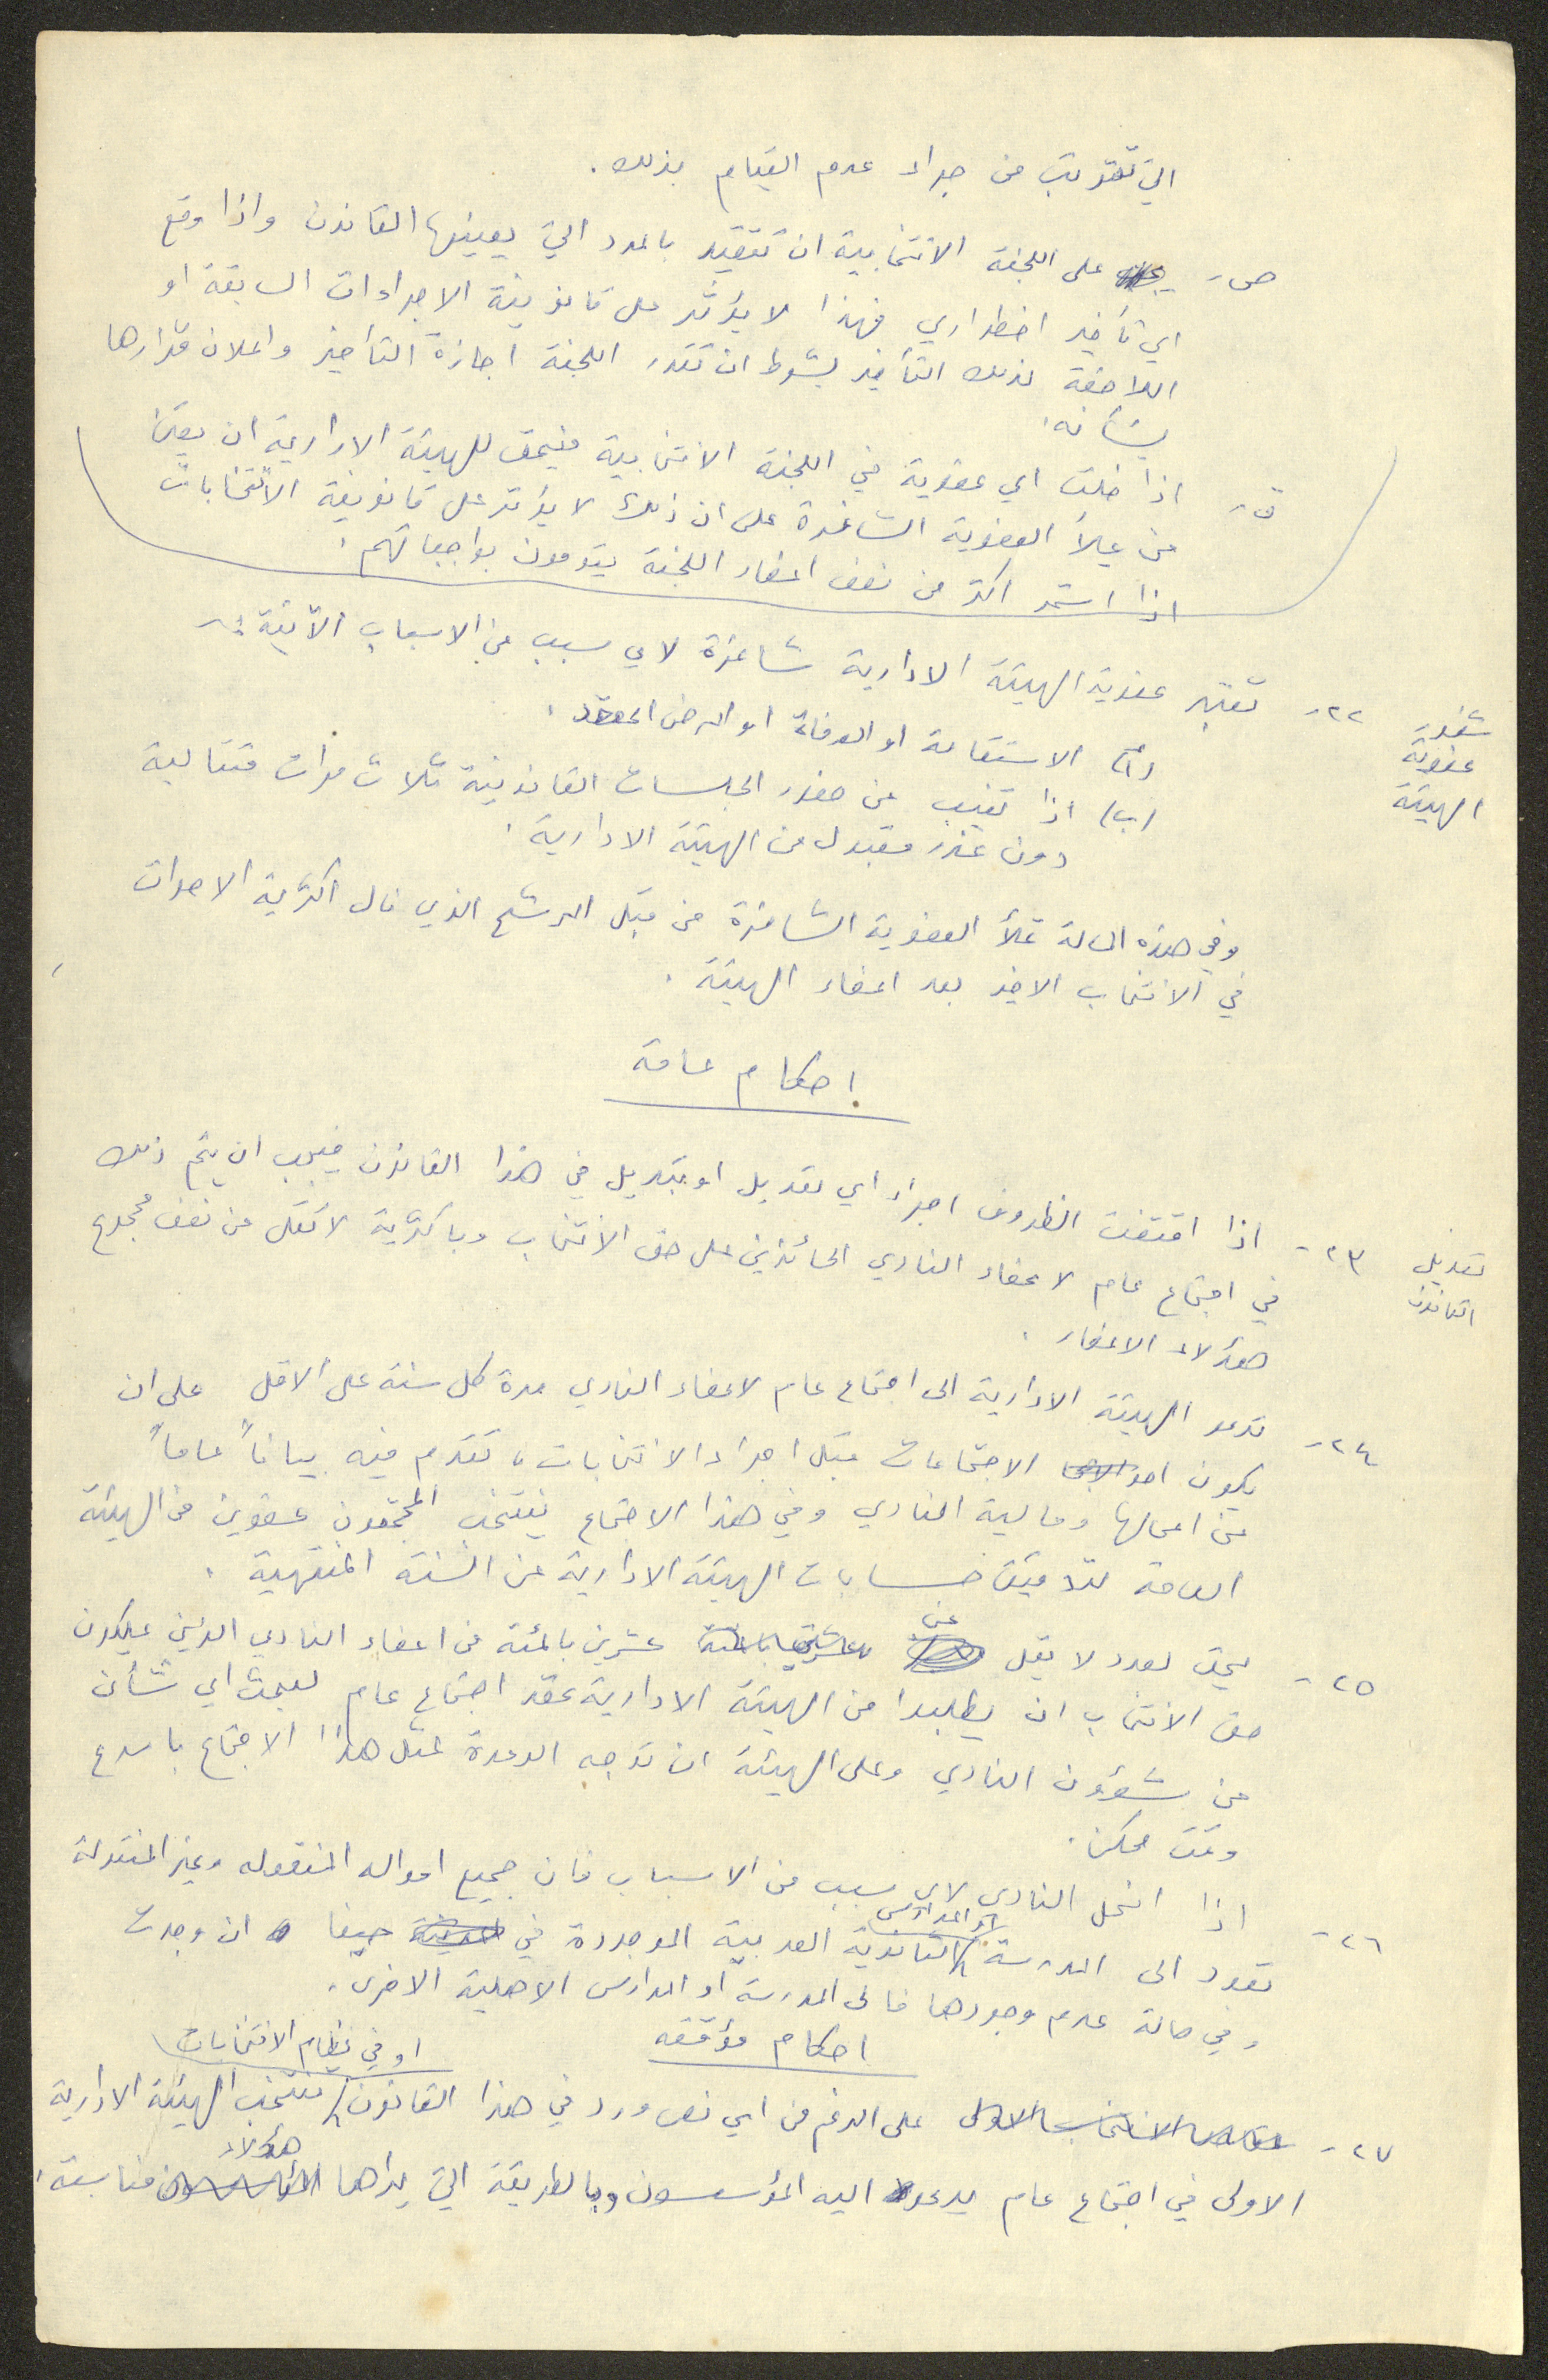 التي تترتب من جراء عدم القيام بذلك.
ص - على اللجنة الانتخابية ان تتقيد بالمدد التي يعينها القانون واذا وقع
اي تأخير اضطراري فهذا لا يؤثر على قانونية الاجراءات السابقة او
اللاحقة لذلك التأخير بشرط ان تقرر اللجنة اجازة التأخير واعلان قرارها
بشأنه.
ق - اذا خلت اي عضوية في اللجنة الانتخابية فيحق للهيئة الادارية ان يعين
من يملأ العضوية الشاغرة على ان ذلك لا يؤثر على قانونية الانتخابات
اذا استمر اكثر من نصف اعضاء اللجنة يقومون بواجباتهم.
شغور
عضوية
الهيئة
٢٢ - تعتبر عضوية الهيئة الادارية شاغرة لاي سبب من الاسباب الآتية :-
(أ) الاستقالة او الوفاة او المرض المقعد.
(ب) اذا تغيب عن حضور الجلسات القانونية ثلاث مرات متتالية
دون عذر مقبول من الهيئة الادارية.
وفي هذه الحالة تملأ العضوية الشاغرة من قبل المرشح الذي نال اكثرية الاصوات
في الانتخاب الاخير بعد اعضاء الهيئة.
احكام عامة
تعديل
القانون
٢٣ - اذا اقتضت الظروف اجراء اي تعديل او تبديل في هذا القانون فيجب ان يتم ذلك
في اجتماع عام لاعضاء النادي الحائزين على حق الانتخاب وباكثرية لا تقل عن نصف مجموع
هؤلاء الاعضاء.
٢٤ - تدعو الهيئة الادارية الى اجتماع عام لاعضاء النادي مرة كل سنة على الاقل على ان
يكون احد الاجتماعات قبل اجراء الانتخابات، تقدم فيه بياناً عاماً
عن اعمالها ومالية النادي وفي هذا الاجتماع ينتخب المجتمعون عضوين من الهيئة
العامة لتدقيق حسابات الهيئة الادارية عن السنة المنتهية.
٢٥ - يحق لعدد لا يقل عن عشرين بالمئة من اعضاء النادي الذين يملكون
حق الانتخاب ان يطلبوا من الهيئة الادارية عقد اجتماع عام لبحث اي شأن
من شؤون النادي وعلى الهيئة ان توجه الدعوة لمثل هذا الاجتماع باسرع
وقت ممكن.
٢٦ - اذا انحل النادي لاي سبب من الاسباب فان جميع امواله المنقوله وغير المنقولة
تعود الى المدرسة او المدارس الثانوية العربية الموجودة في حيفا ان وجدت
وفي حالة عدم وجودها فالى المدرسة او المدارس الاهلية الاخرى.
احكام مؤقته
٢٧ - على الرغم من اي نص ورد في هذا القانون او في نظام الانتخابات تنتخب الهيئة الادارية
الاولى في اجتماع عام يدعو اليه المؤسسون وبالطريقة التي يراها هؤلاء مناسبة.